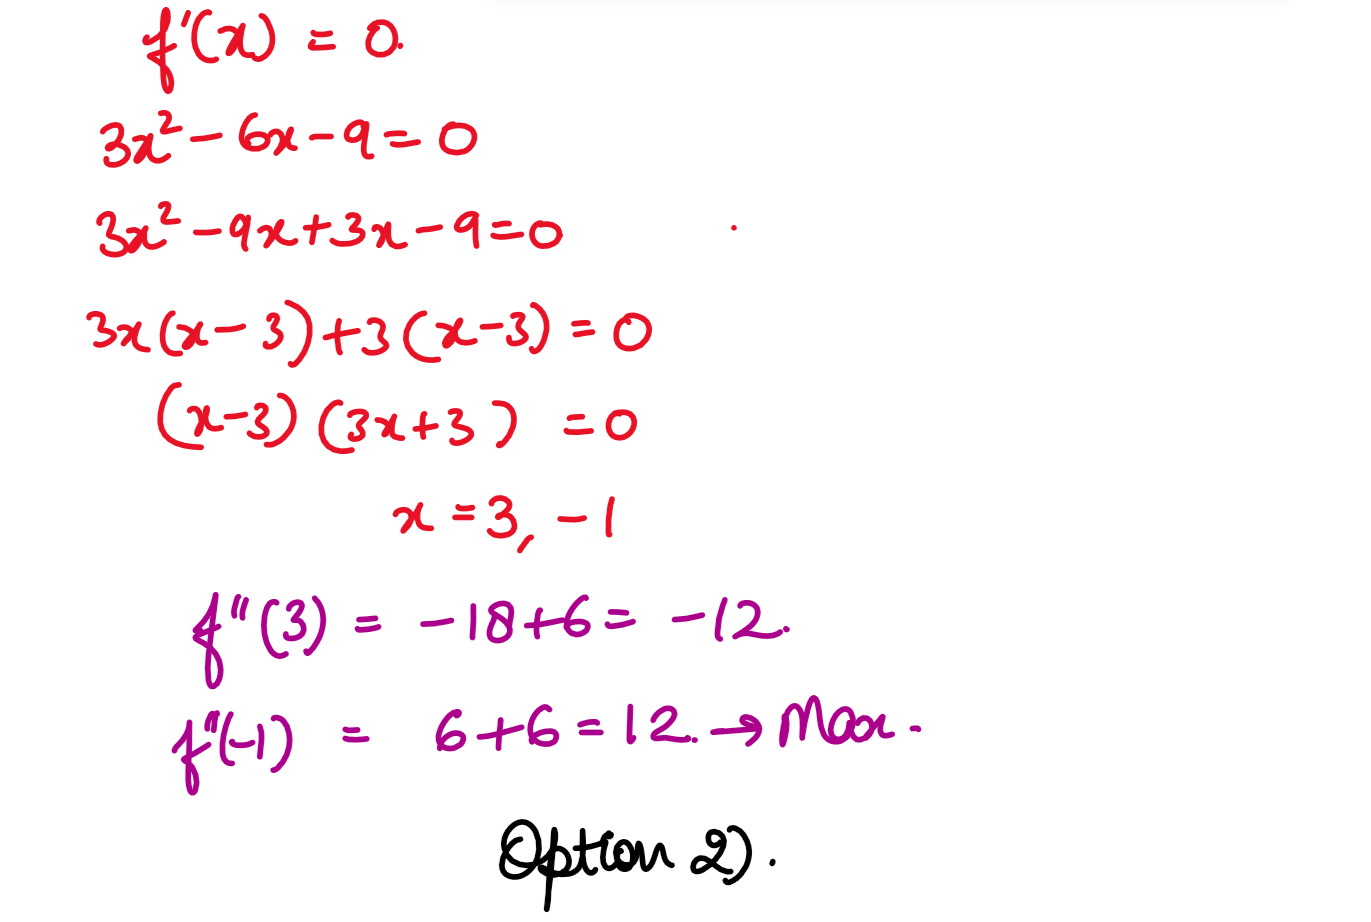 f'(x) = 0.
3x² - 6x - 9 = 0
3x² - 9x + 3x - 9 = 0
3x(x - 3) + 3(x - 3) = 0
(x - 3) (3x + 3) = 0
x = 3, -1
f"(3) = -18 + 6 = -12.
f"(-1) = 6 + 6 = 12. → Max.
Option 2).